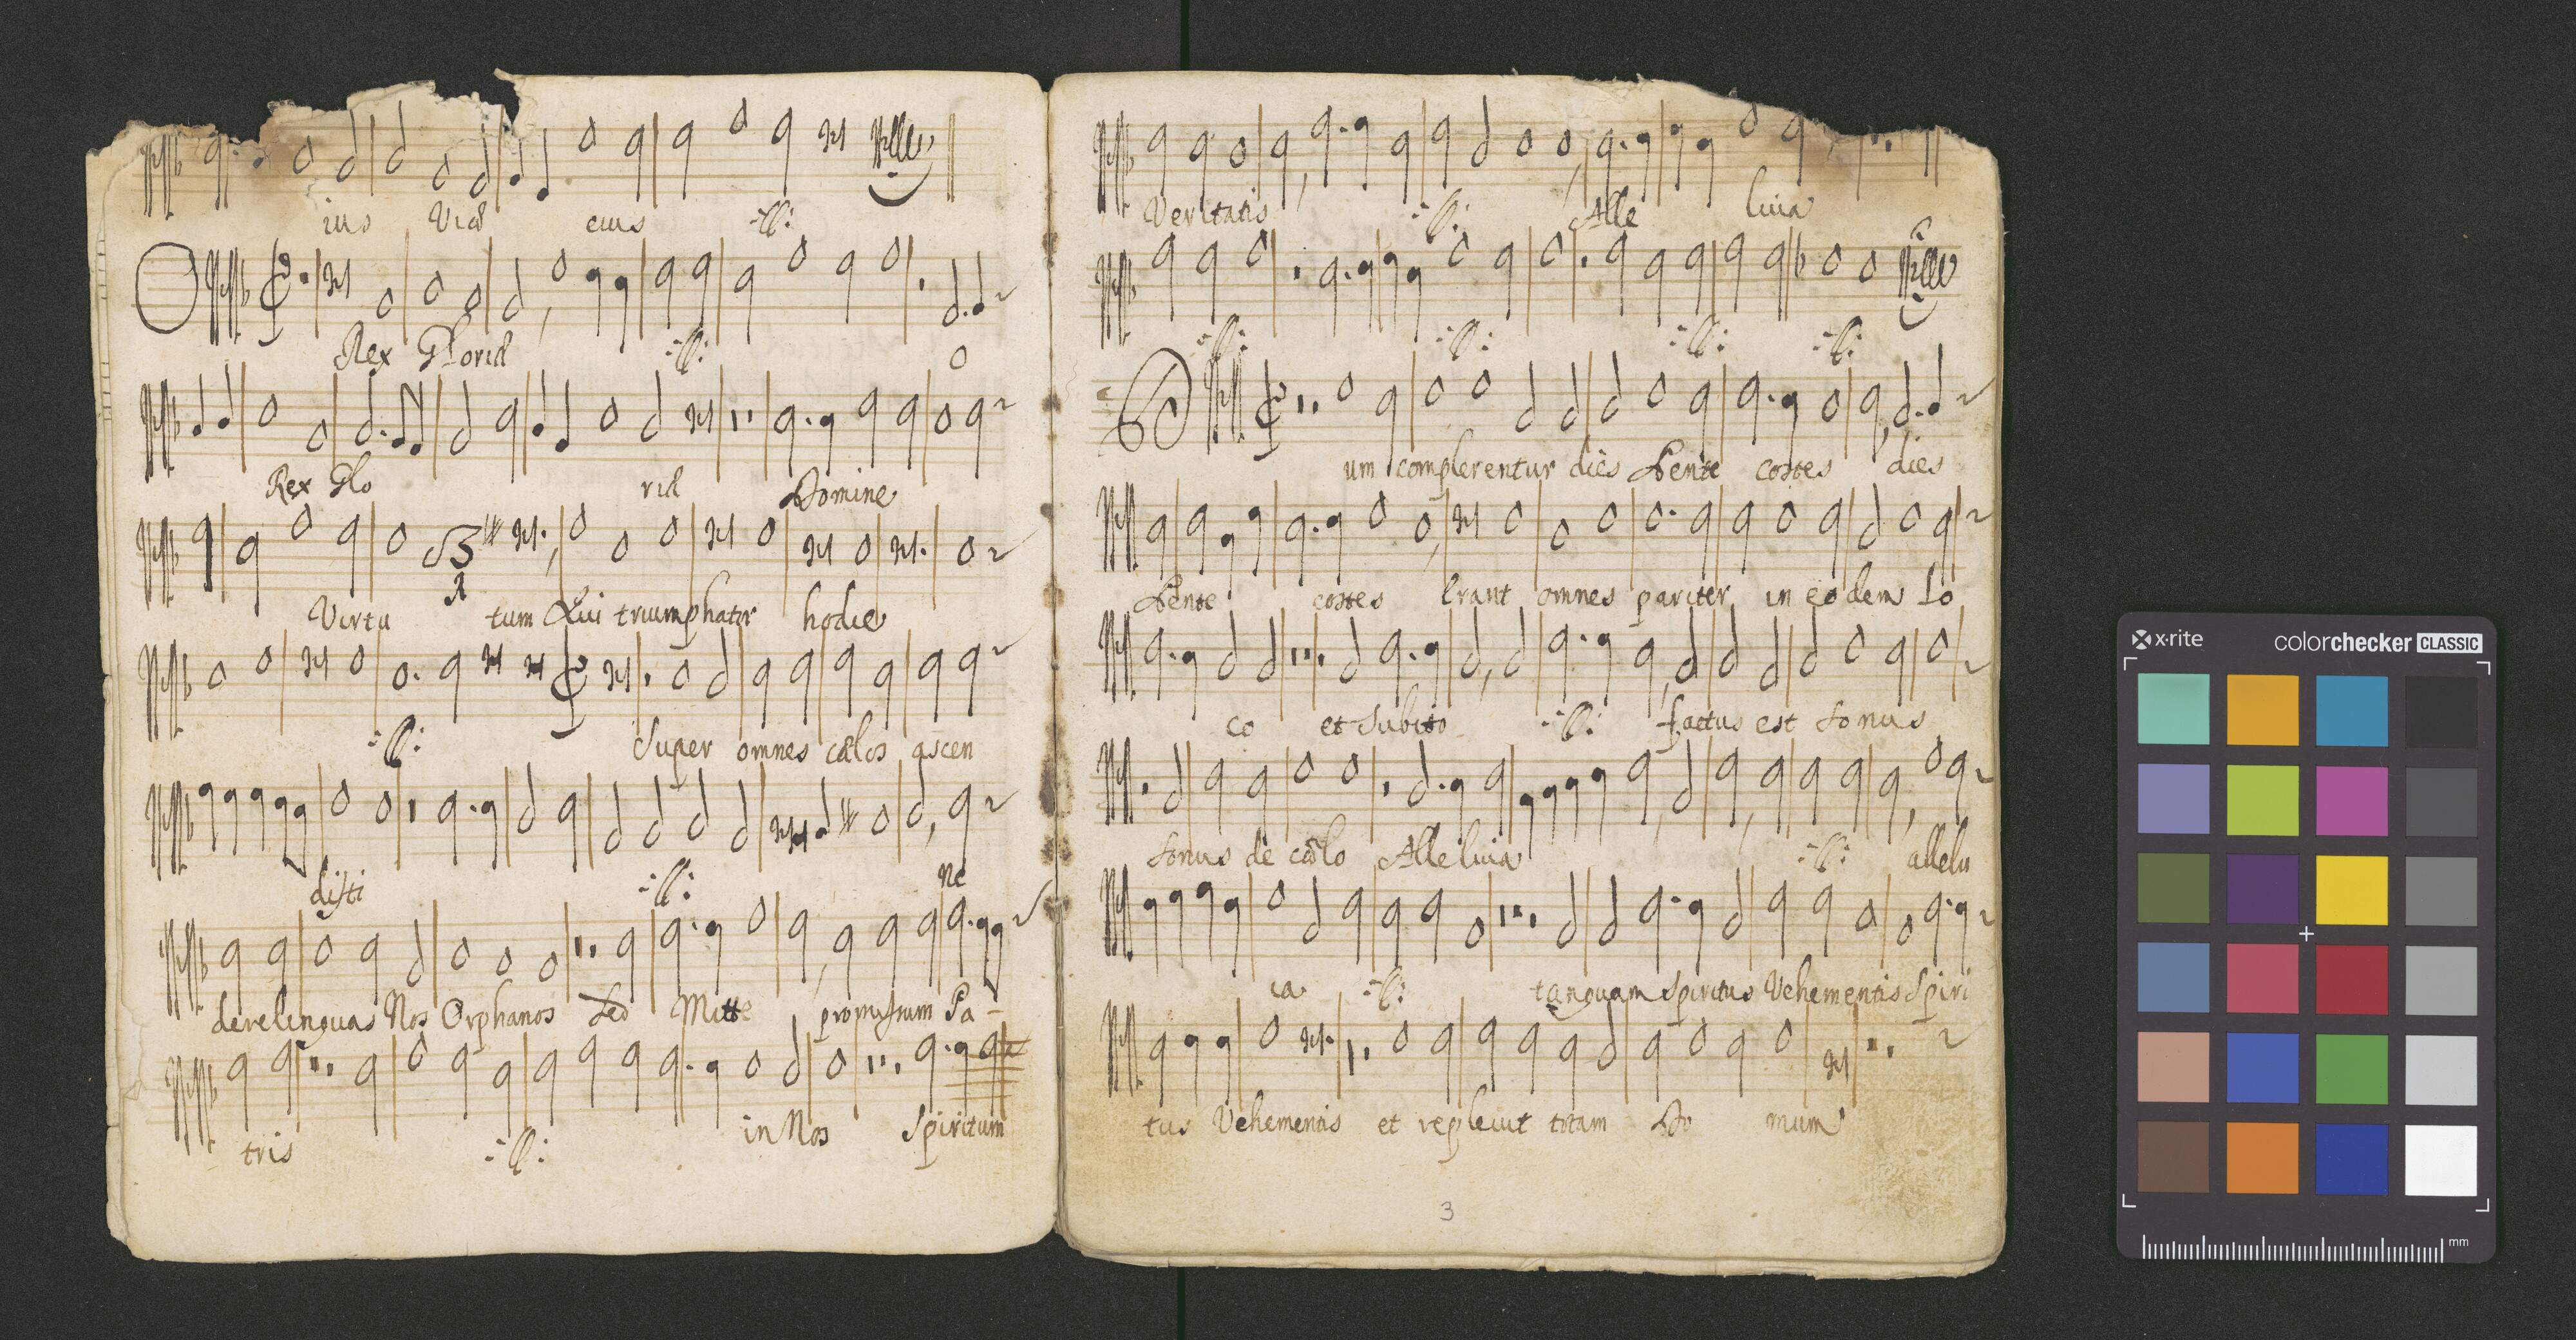 ius Viæ eius :||:
O Rex Gloriæ :||: O
Rex Glo riæ Domine
Virtu tum Qui triumphator hodie
:||: Super omnes cælos ascen
disti :||: ne
derelinquas Nos Orphanos Sed Mitte promissum Pa-
tris :||: in Nos Spiritum
Veritatis :||: Alle luia
:||: :||: :||: :||:
um complerentur dies Pente costes dies
Pente costes Erant omnes pariter in eodem Lo
co et subito :||: factus est sonus
sonus de cælo Alleluia :||: allelu
ia :||: tanquam spiritus Vehementis Spiri
tus Vehementis et repleuit totam Do mum
3
x-rite
colorchecker CLASSIC
mm